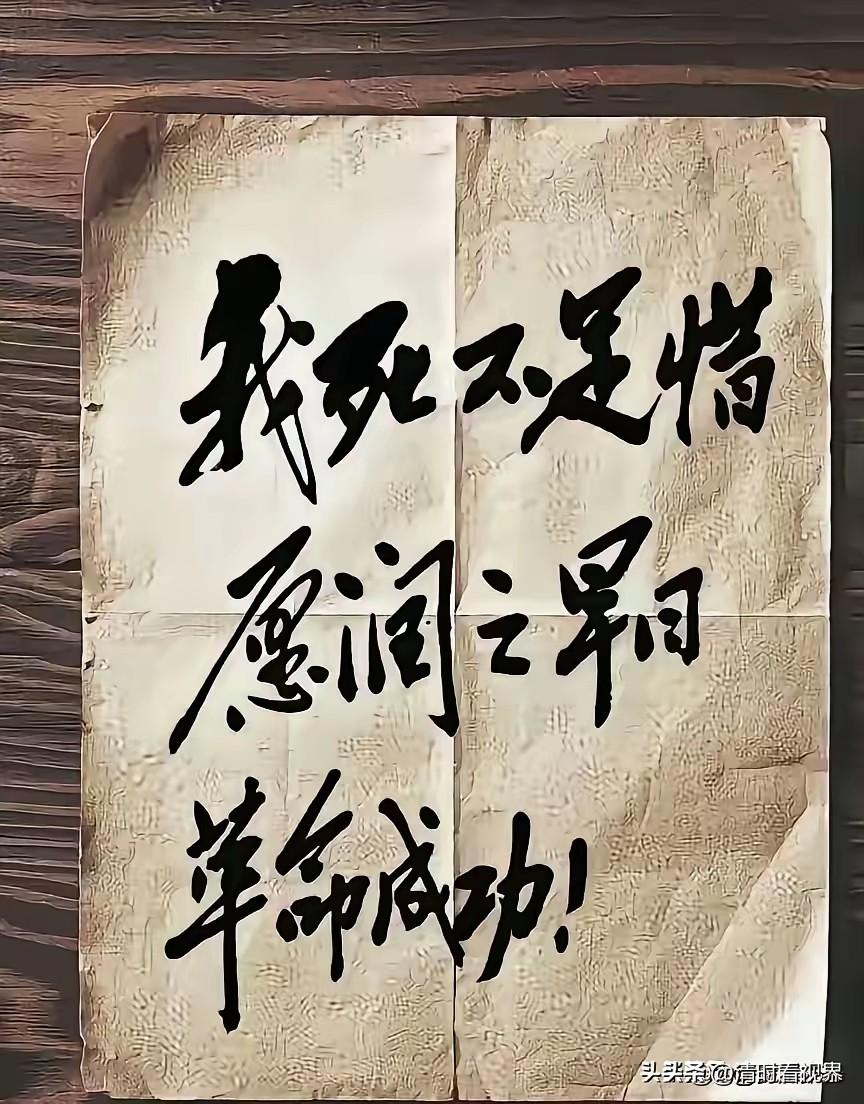 我死不足惜
愿润之早日
革命成功!
头条号@清时看视界